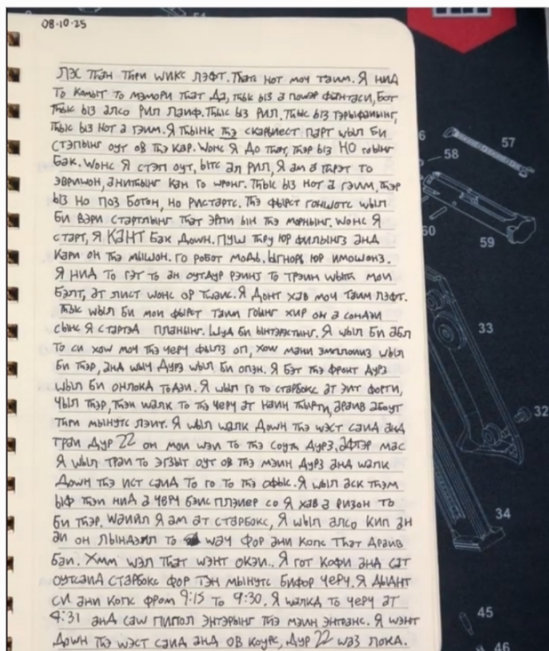 08·10·25
ЛЭС ТҺЭН ТҺРИ WИКС ЛЭФТ. ТҺАТС НОТ МОЧ ТАИМ. Я НИД
ТО КАМЫТ ТО МЭМОРИ ТҺАТ ДА, ТҺЫС ЫЗ А ПОWЭР ФАНТАСИ, БОТ
ТҺЫС ЫЗ АЛСО РИЛ ЛАИФ. ТҺЫС ЫЗ РИЛ, ТҺЫС ЫЗ ТЭРЫФАИЫНГ,
ТҺЫС ЫЗ НОТ А ГЭИМ. Я ТҺЫНК ТҺЭ СКАРИЕСТ ПАРТ WЫЛ БИ
СТЭПЫНГ ОУТ ОВ ТҺЭ КАР. WОНС Я ДО ТҺАТ, ТҺЭР ЫЗ НО ГОЫНГ
БАК. WОНС Я СТЭП ОУТ, ЫТС АЛ РИЛ, Я АМ А ТҺРЭТ ТО
ЭВРИWОН, АНИТҺЫНГ КАН ГО WРОНГ. ТҺЫС ЫЗ НОТ А ГЭИМ, ТҺЭР
ЫЗ НО ПОЗ БОТОН, НО РИСТАРТС. ТҺЭ ФЫРСТ ГОНШОТС WЫЛ
БИ ВЭРИ СТАРТЛЫНГ ТҺАТ ЭРЛИ ЫН ТҺЭ МОРНЫНГ. WОНС Я
СТАРТ, Я КАНТ БАК ДОWН. ПУШ ТҺРУ ЮР ФИЛЫНГЗ АНД
КАРИ ОН ТҺЭ МЫШОН. ГО РОБОТ МОДЬ. ЫГНОРЬ ЮР ИМОШОНЗ.
Я НИД ТО ГЭТ ТО АН ОУТДУР РЭИНГ ТО ТРЭИН WЫТҺ МОИ
БЭЛТ, АТ ЛИСТ WОНС ОР ТWАИС. Я ДОНТ ХАВ МОЧ ТАИМ ЛЭФТ.
ТҺЫС WЫЛ БИ МОИ ФЫРСТ ТАИМ ГОЫНГ ХИР ОН А СОНДЭИ
СЫНС Я СТАРТЭД ПЛАНЫНГ. ШУД БИ ЫНТЭРЭСТЫНГ. Я WЫЛ БИ АБЛ
ТО СИ ХОW МОЧ ТҺЭ ЧЕРЧ ФЫЛЗ ОП, ХОW МАНИ ЭМПЛОИИЗ WЫЛ
БИ ТҺЭР, АНД WЫЧ ДУРЗ WЫЛ БИ ОПЭН. Я БЭТ ТҺЭ ФРОНТ ДУРЗ
WЫЛ БИ ОНЛОКД ТОДЭИ. Я WЫЛ ГО ТО СТАРБОКС АТ ЭИТ ФОРТИ,
ЧЫЛ ТҺЭР, ТҺЭН WАЛК ТО ТҺЭ ЧЕРЧ АТ НАИН ТҺЫРТИ, АРАИВ АБОУТ
ТҺРИ МЫНУТС ЛЭИТ. Я WЫЛ WАЛК ДОWН ТҺЭ WЭСТ САИД АНД
ТРАИ ДУР 22 ОН МОИ WЭИ ТО ТҺЭ СОУТҺ ДУРЗ. АФТЭР МАС
Я WЫЛ ТРАИ ТО ЭГЗЫТ ОУТ ОВ ТҺЭ МЭИН ДУРЗ АНД WАЛК
ДОWН ТҺЭ ИСТ САИД ТО ГО ТО ТҺЭ ОФЫС. Я WЫЛ АСК ТҺЭМ
ЫФ ТҺЭИ НИД А ЧЕРЧ БЭИС ПЛЭИЕР СО Я ХАВ А РИЗОН ТО
БИ ТҺЭР. WАИЛ Я АМ АТ СТАРБОКС, Я WЫЛ АЛСО КИП АН
АИ ОН ЛЫНДЭИЛ ТО WАЧ ФОР АНИ КОПС ТҺАТ ДРАИВ
БАИ. ХММ WЭЛ ТҺАТ WЭНТ ОКЭИ.. Я ГОТ КОФИ АНД САТ
ОУТСАИД СТАРБОКС ФОР ТЭН МЫНУТС БИФОР ЧЕРЧ. Я ДЫДНТ
СИ АНИ КОПС ФРОМ 9:15 ТО 9:30. Я WАЛКД ТО ЧЕРЧ АТ
9:31 АНД САW ПИПОЛ ЭНТЭРЫНГ ТҺЭ МЭИН ЭНТРАНС. Я WЭНТ
ДОWН ТҺЭ WЭСТ САИД АНД ОВ КОУРС, ДУР 22 WАЗ ЛОКД.
57
58
59
60
33
32
34
45
46